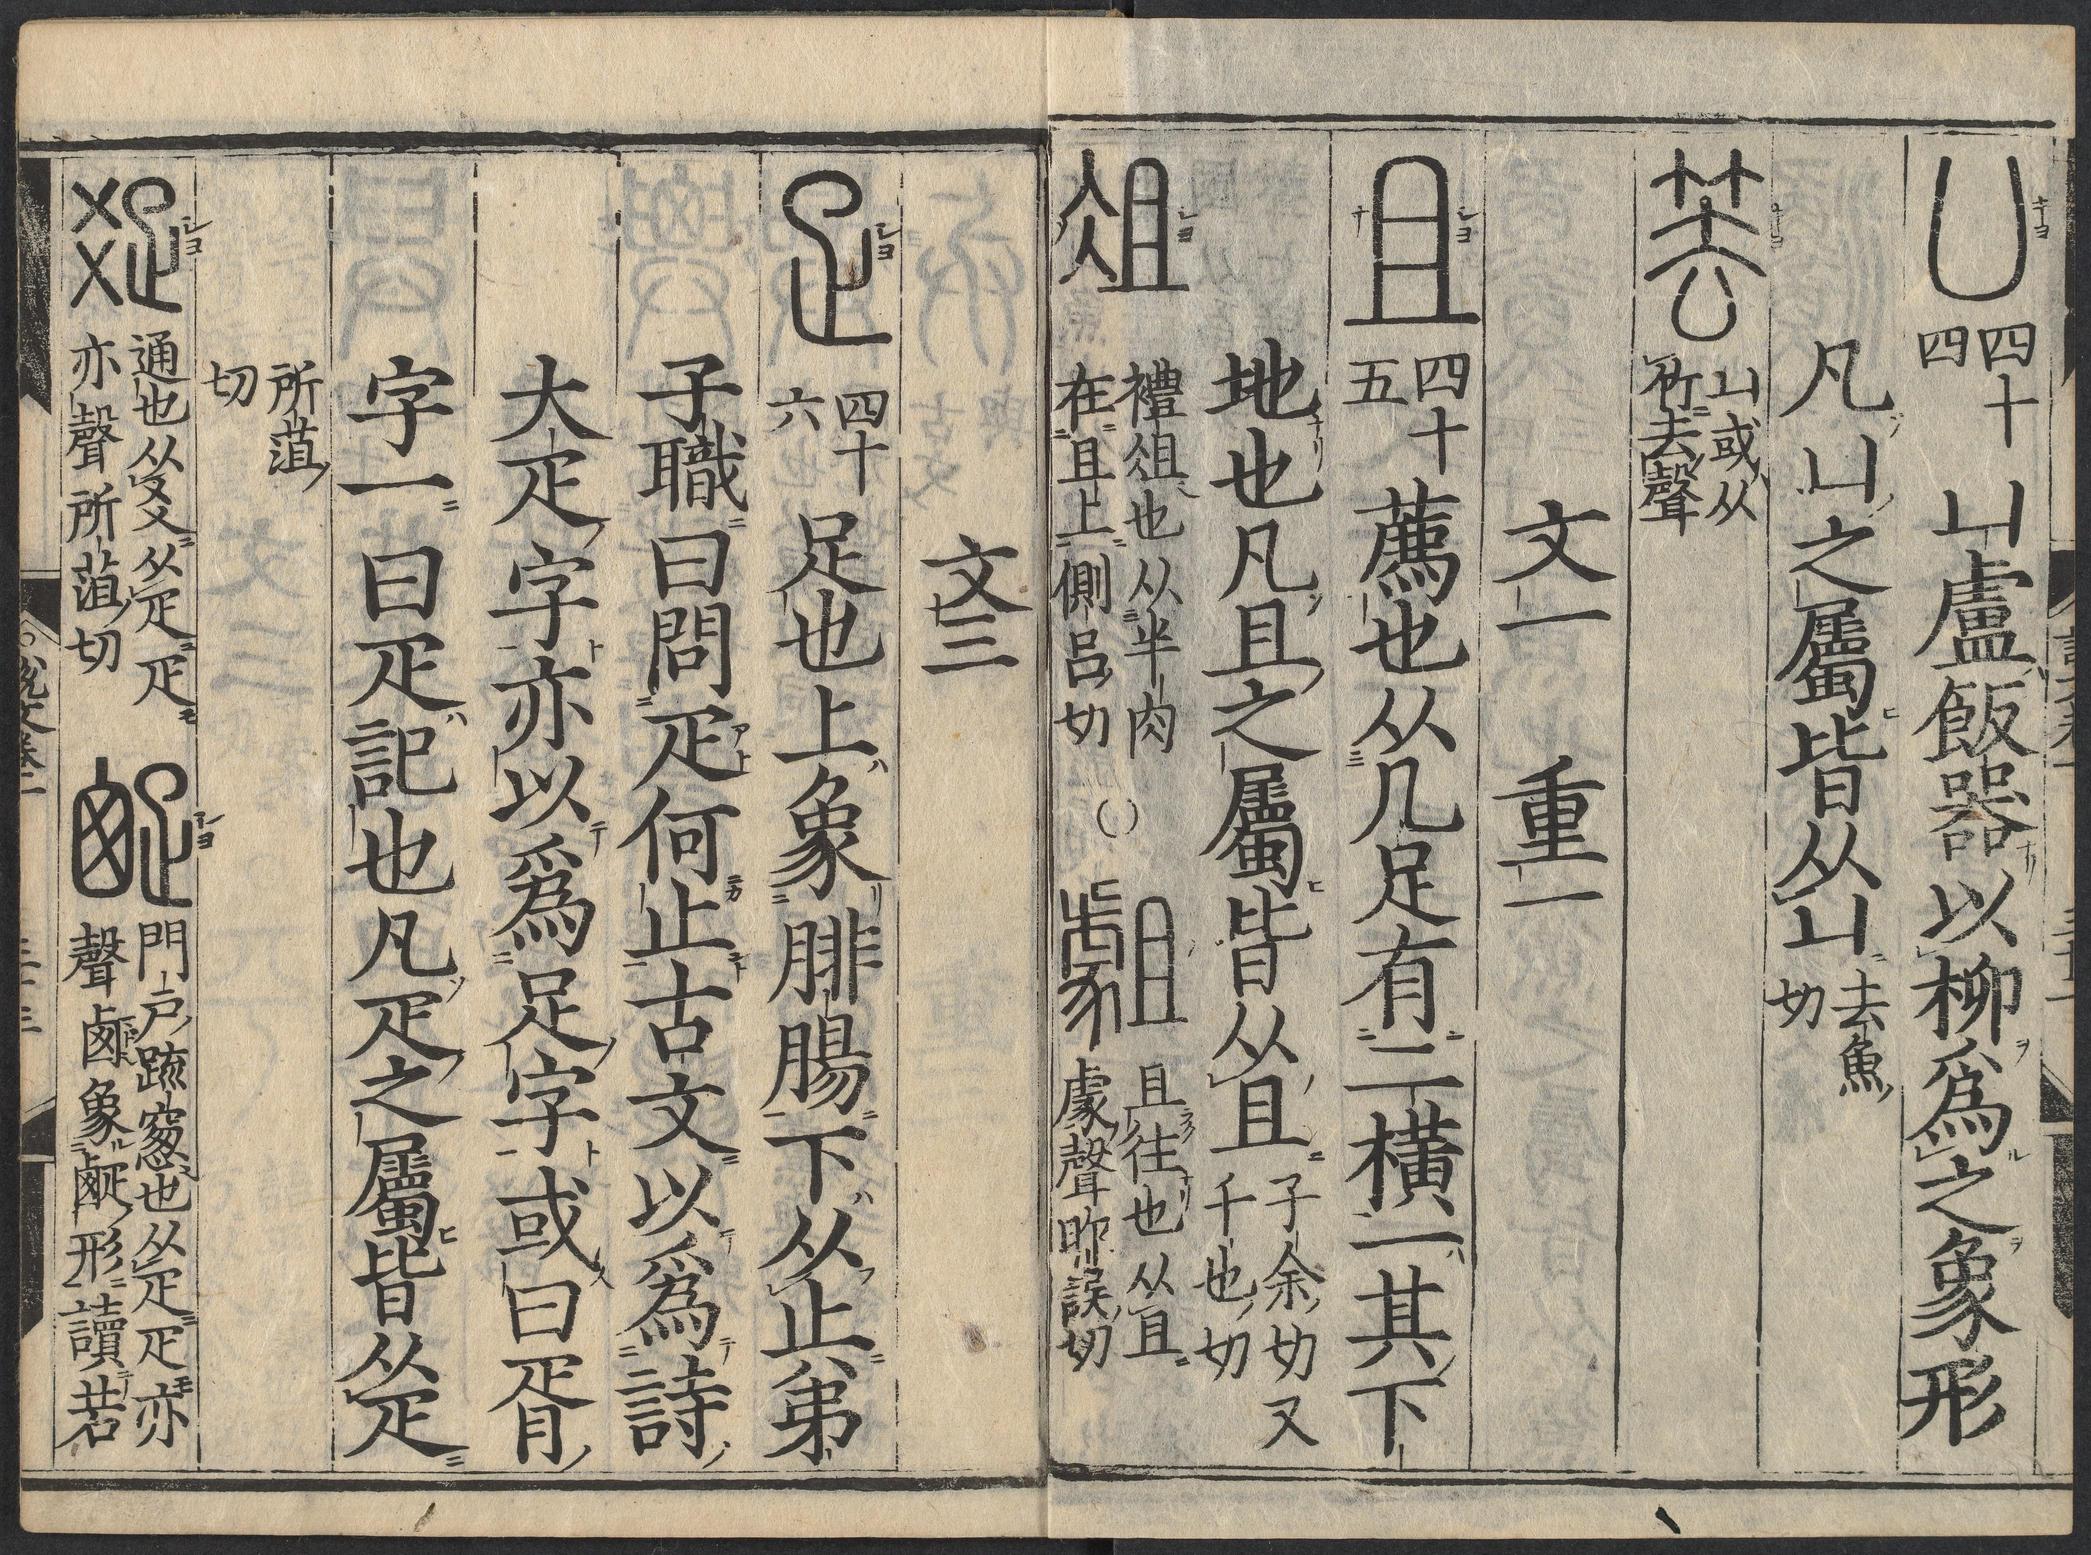 凵 四十四 凵盧飯器以柳爲之象形
凡凵之屬皆从凵 去魚切
𥬔 凵或从竹去聲
文一 重一
且 四十五 薦也从几足有二橫一其下
地也凡且之屬皆从且 子余切又千也切
俎 禮俎也从半肉在且上側呂切 𧇿 且往也从且豦聲昨誤切
文三
疋 四十六 足也上象腓腸下从止弟
子職曰問疋何止古文以爲詩
大疋字亦以爲足字或曰胥
字一曰疋記也凡疋之屬皆从疋
所菹切
𤕟 通也从爻从疋疋亦聲所菹切 𤴙 門戶疏窻也从疋疋亦聲囪象𤴙形讀若
説文卷二
三十三